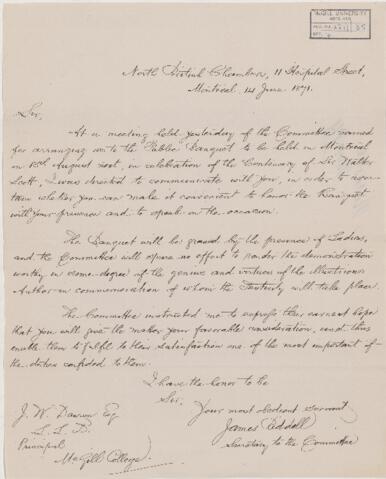 McGILL UNIVERSITY
North British Chambers, 11 Hospital Street,
Montreal, 14 June 1871.
Sir,
At a meeting held yesterday of the Committee named
for arranging as to the "Public" Banquet to be held in Montreal
on 15th August next, in celebration of the Centenary of Sir Walter
Scott, I was directed to communicate with you, in order to ascer-
tain whether you can make it convenient to honor the Banquet
with your presence and to speak on the occasion.
The Banquet will be graced by the presence of Ladies,
and the Committee will spare no effort to render the demonstration
worthy in some degree of the genius and virtues of the illustrious
Author in commemoration of whom the Festivity will take place.
The Committee instructed me to express their earnest hope
that you will give the matter your favorable consideration, and thus
enable them to fulfil to their satisfaction one of the most important of
the duties confided to them.
I have the honor to be
Sir,
Your most obedient servant
James
Secretary to the Committee
J. W. Dawson Esq
L. L. D.
Principal
McGill College